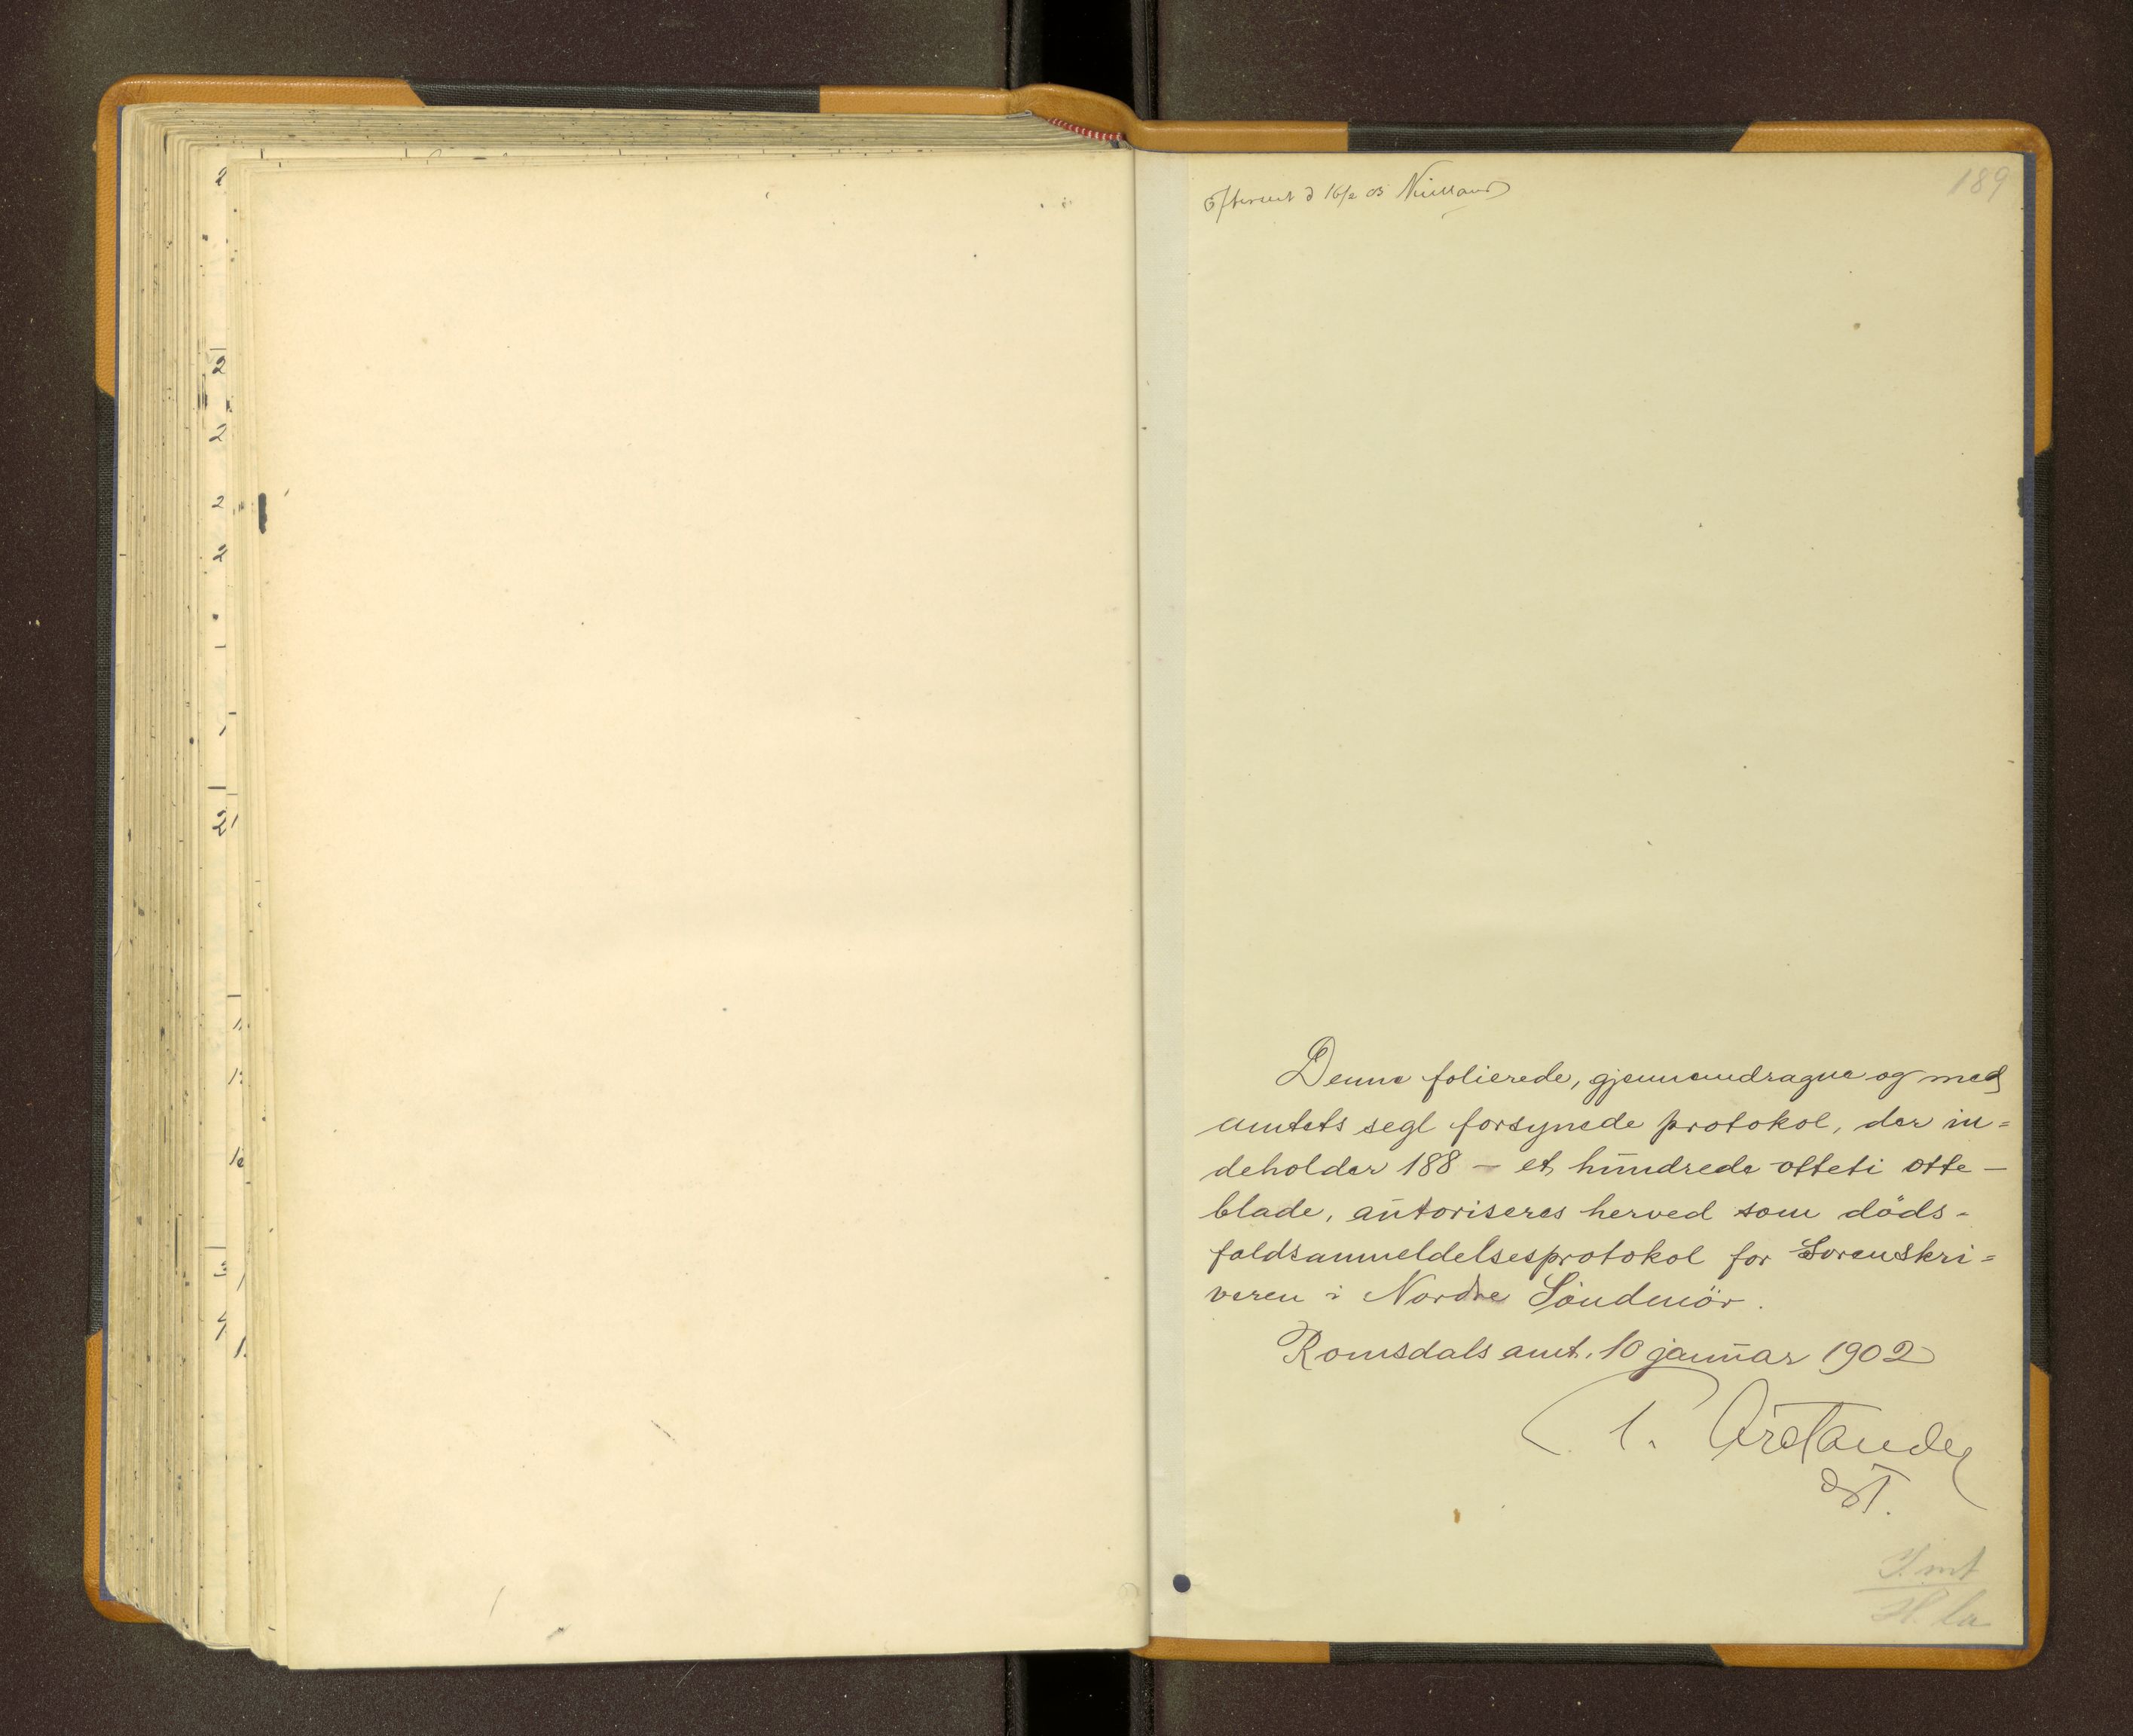 Efterseet d 16/2 03
189
Denne folierede, gjennemdragne og med
amtets segl forsynede protokol, der in=
deholder 188 – et hundrede otteti otte –
blade, autoriseres herved som döds-
faldsanmeldelsesprotokol for Sorenskri=
veren i Nordre Söndmör.
Romsdals amt, 10 januar 1902
T. Aarstander
cst.
2
2
2
2
2
2